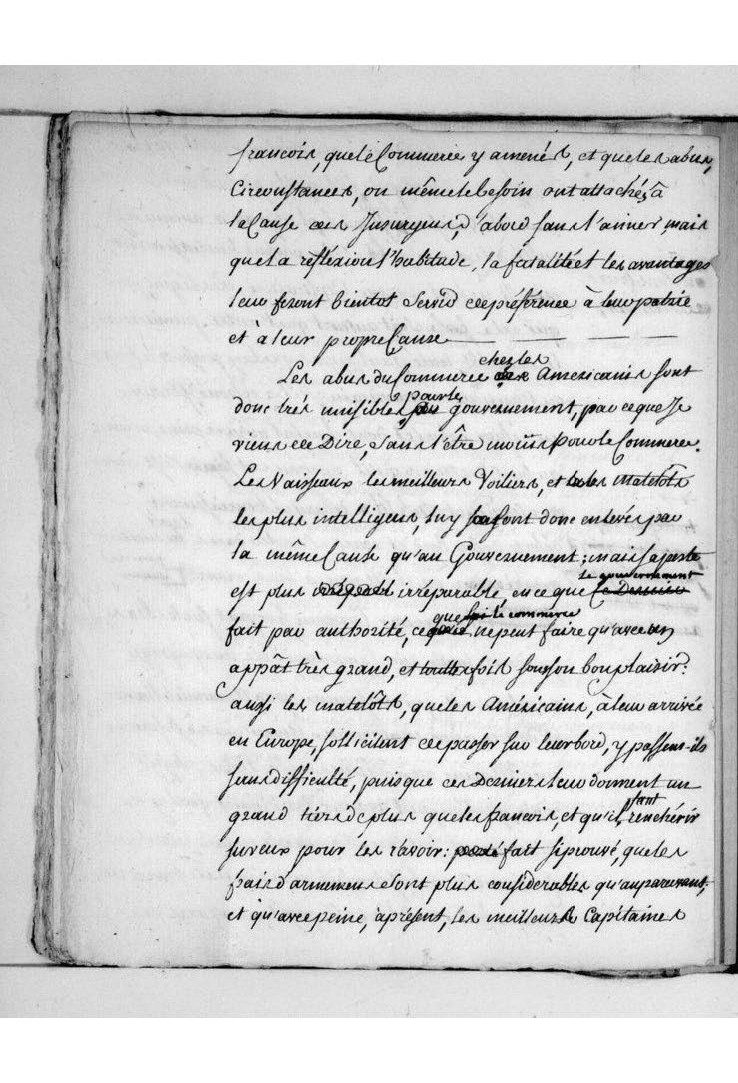 francois, que le Commerce y amenés, et que les abus,
Circonstances, ou même le besoin ont attachés, à
la Cause des Insurgens, d'abord sans l'aimer, mais
que la réfléxion l'habitude, la fatalité et les avantages
leur feront bientot Servir de préférence à leur patrie
et à leur propre Cause
chez les
Les abus du Commerce des Américains sont
pour le
donc très nuisibles, au gouvernement, par ce que Je
viens de Dire, sans l'être moins pour le Commerce.
Les Vaisseaux les meilleurs Voiliers, et les matelots
les plus intelligens, luy sont donc enlevés par
la même Cause qu'au Gouvernement; mais sa perte
le gouvernement
est plus irréparable, en ce que le Dernier
que le commerce
fait par authorité, ce ne peut faire qu'avec un
appât très grand, et toutte fois sous son bon plaisir:
aussi les matelôts, que les Américains, à leur arrivée
en Europe, sollicitent de passer sur leur bord, y passent-ils
sans difficulté, puisque ces Derniers leur donnent un
faut
grand tiers de plus que les francois, et qu'il, renchérir
sur eux pour les r'avoir: fait si prouvé, que les
frais d'armemens sont plus considerables qu'auparavant,
et qu'avec peine, àprésent, les meilleurs Capitaines